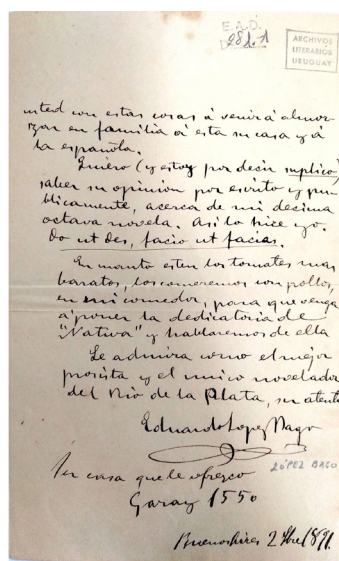 E.A.D.
D 281.1
ARCHIVOS
LITERARIOS
URUGUAY
usted con estas cosas á venir á almor-
zar en familia á esta su casa y á
la española.
Quiero (y estoy por decir suplico)
saber su opinión por escrito y pú-
blicamente, acerca de mi décima
octava novela. Así lo hice yo.
Do ut des, facio ut facias.
En cuanto esten los tomates mas
baratos, los comeremos con pollos,
en mi comedor, para que venga
á poner la dedicatoria de
"Nativa" y hablaremos de ella
Le admira como el mejor
prosista y el unico novelador
del Rio de la Plata, su atento
Eduardo Lopez Bago
LÓPEZ BAGO
su casa que le ofrezco
Garay 1550
Buenos Aires 2 1891.